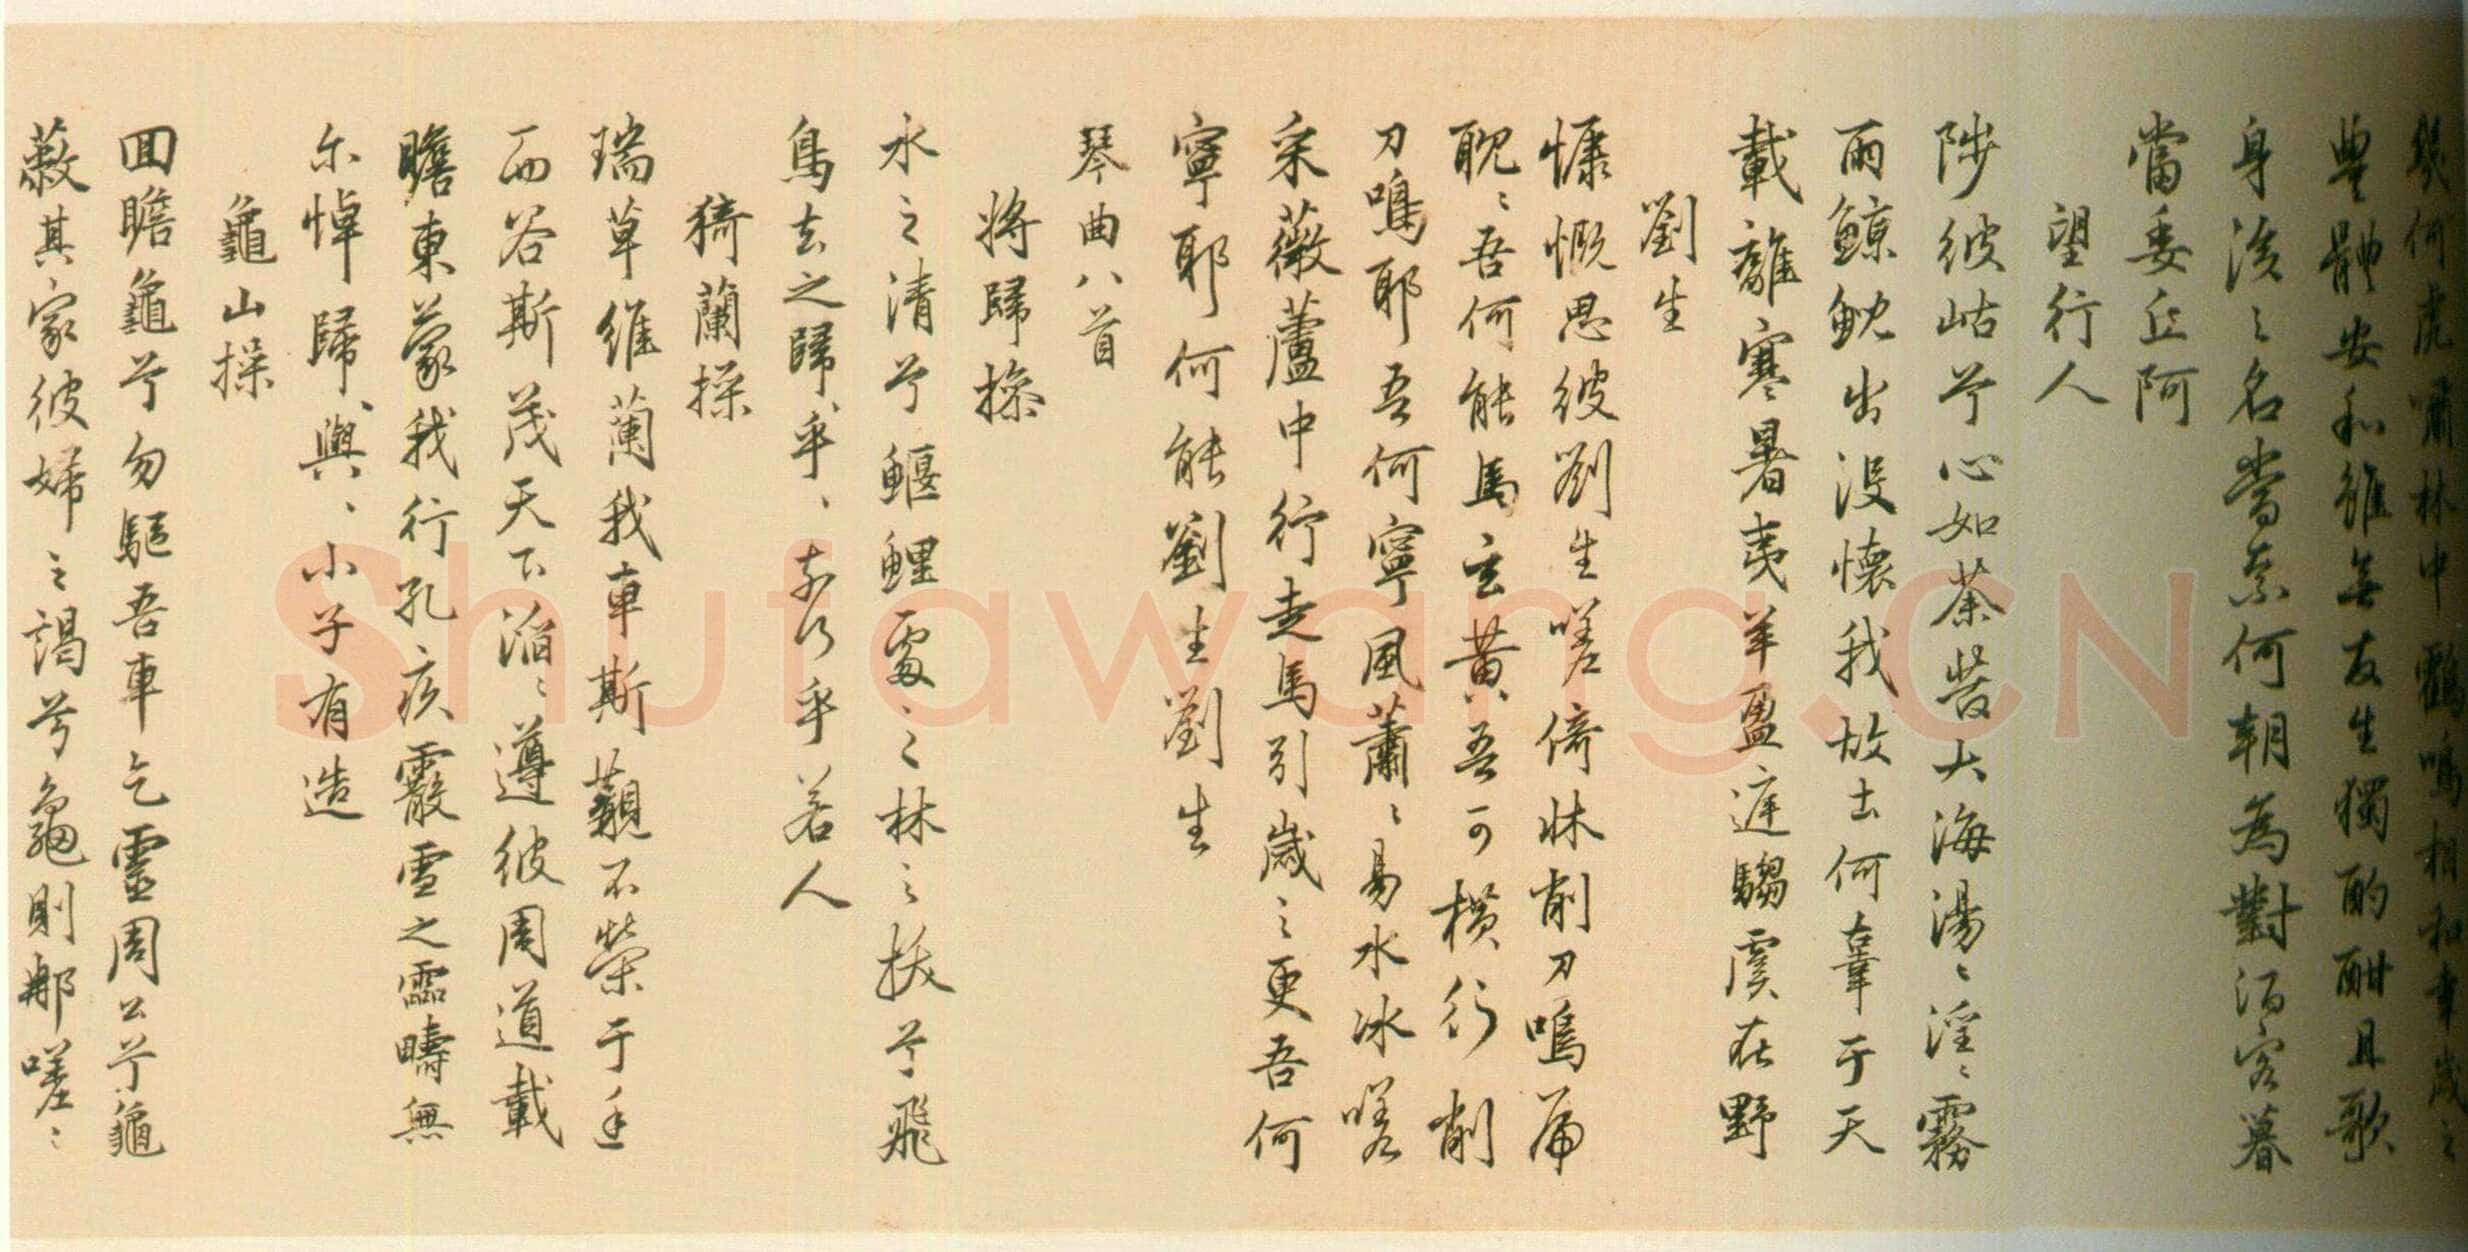 幾何虎嘯林中鸛鳴相和幸歲之
豐體安和雖無友生獨酌酣且歌
身後之名當奈何朝為對酒客暮
當委丘阿
望行人
陟彼岵兮心如荼苦大海湯湯淫淫霧
雨鯨魷出沒懷我故土何辜于天
載離寒暑夷羊盈庭騶虞在野
劉生
慷慨思彼劉生嗟倚牀削刀鳴
耽耽吾何能馬玄黃吾可橫行削
刀鳴耶吾何寧風蕭蕭易水冰嗟
采薇蘆中行走馬引歲之更吾何
寧耶何能劉生劉生
琴曲八首
將歸操
水之清兮鰋鯉林之扶兮飛
鳥去之歸乎歸乎乎若人
猗蘭操
瑞草維蘭我車斯覯不榮于
而谷斯茂天下滔滔遵彼周道載
瞻東蒙我行孔疚霰雪之霑疇無
尔悼歸與歸與小子有造
龜山操
回瞻龜兮勿驅吾車乞靈周公兮龜
蔽其家彼婦之謁兮龜則那嗟嗟
Shufawang.CN